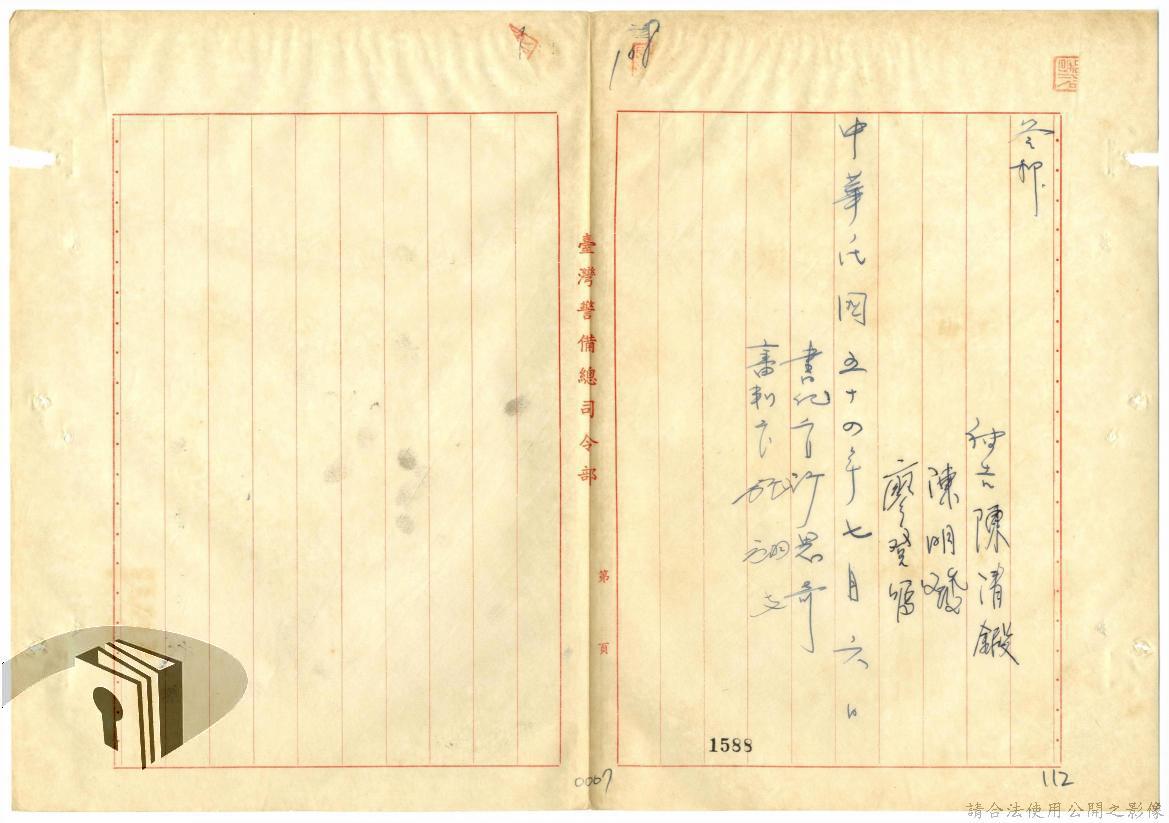 答：部.
被告 陳清鍛
陳明發
廖登鳴
中華民國五十四年七月六日
書記官 許思奇
審判官
臺灣警備總司令部
第 頁
1588
0067
112
請合法使用公開之影像